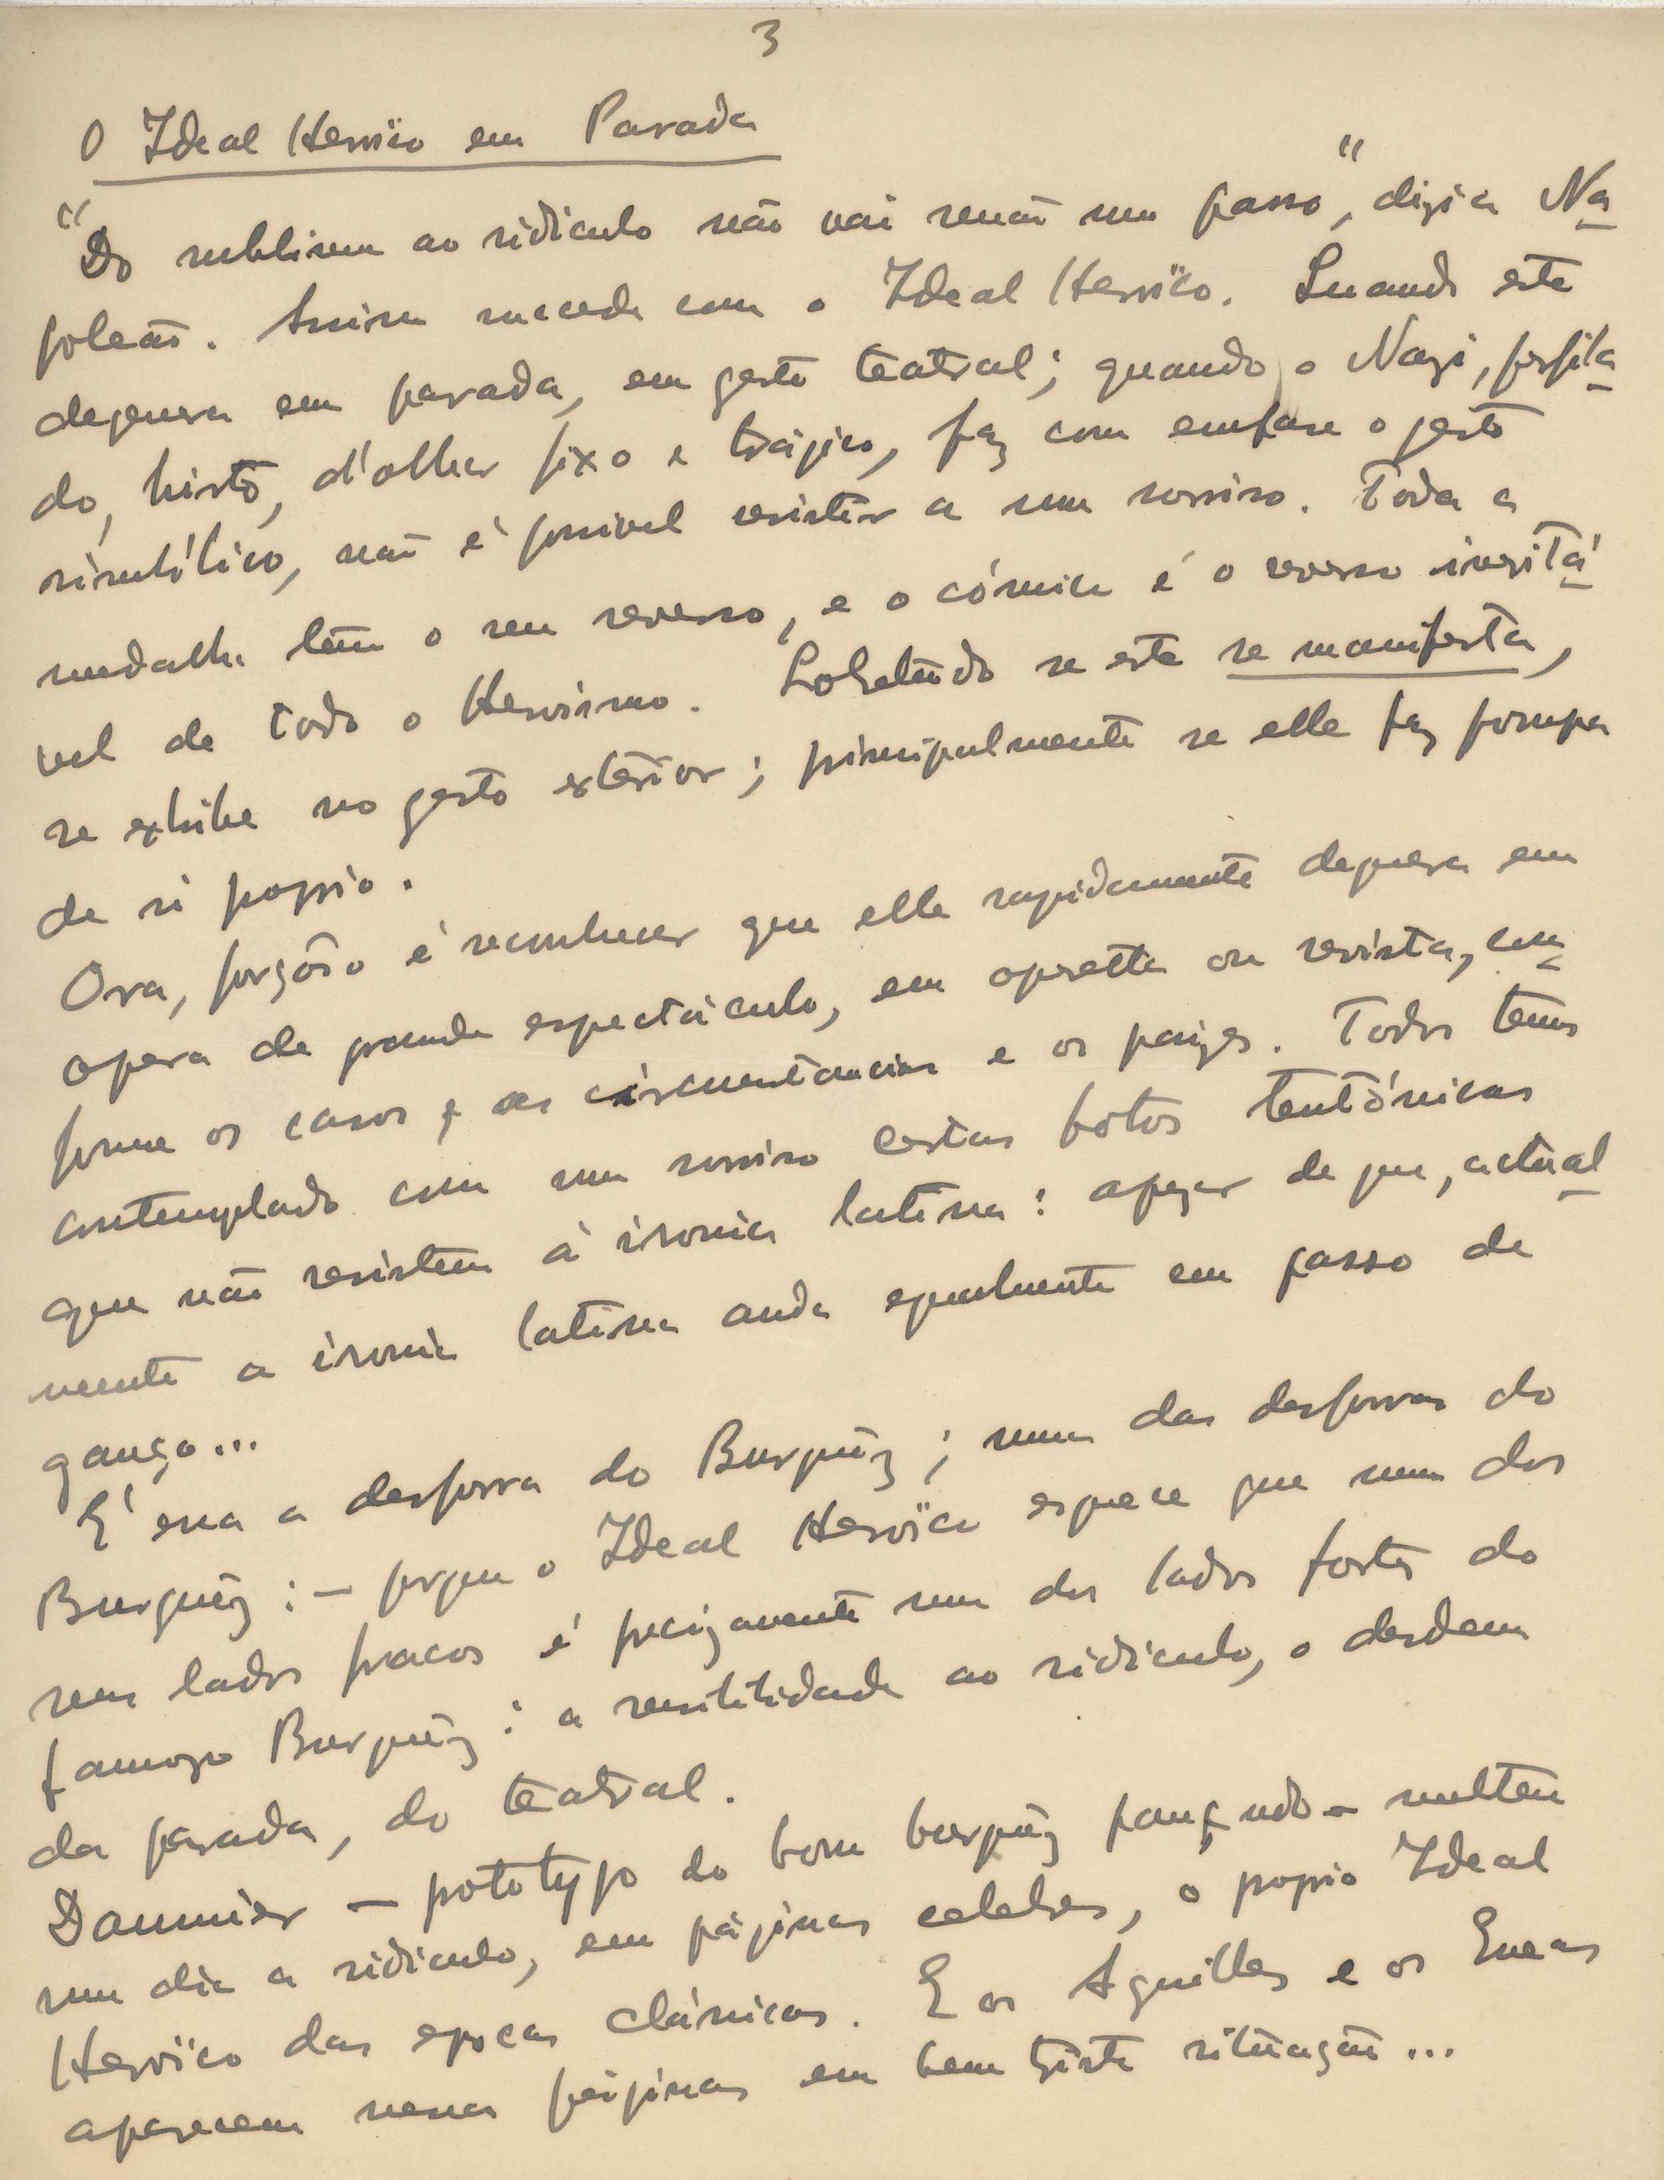 3
O Ideal Heroïco em Parada
"Do sublime ao ridiculo não vai senão um passo", dizia Na
poleão. Assim succede com o Ideal Heroïco. Quando este
degenera em parada, em gesto teatral; quando o Nazi, perfila
do, hirto, d'olhar fixo e trágico, faz com emfase o gesto
simbólico, não é possivel resistir a um sorriso. Toda a
medalha têm o seu reverso, e o cómico é o reverso inevitá
vel de todo o Heroismo. Sobretudo se este se manifesta,
se exhibe no gesto exterior; principalmente se elle faz pompa
de si proprio.
Ora, forçôso é reconhecer que elle rapidamente degenera em
opera de grande espectáculo, em operetta ou revista, con
forme os casos, as circunstancias e os paizes. Todos temos
contemplado com um sorriso certas fotos teutónicas
que não resistem á ironia latina: apezar de que, actual
mente a ironia latina anda egualmente em passo de
ganço...
E' essa a desforra do Burguêz; uma das desforras do
Burguêz: – porque o Ideal Heroïco esquece que um dos
seus lados fracos é precizamente um dos lados fortes do
famozo Burguêz: a sensibilidade ao ridiculo, o desdem
da parada, do teatral.
Daumier – prototypo do bom burguêz pançudo – metteu
um dia a ridiculo, em páginas celebres, o proprio Ideal
Heroïco das epocas clássicas. E os Aquilles e os Eneas
aparecem nessas páginas em bem triste situação...